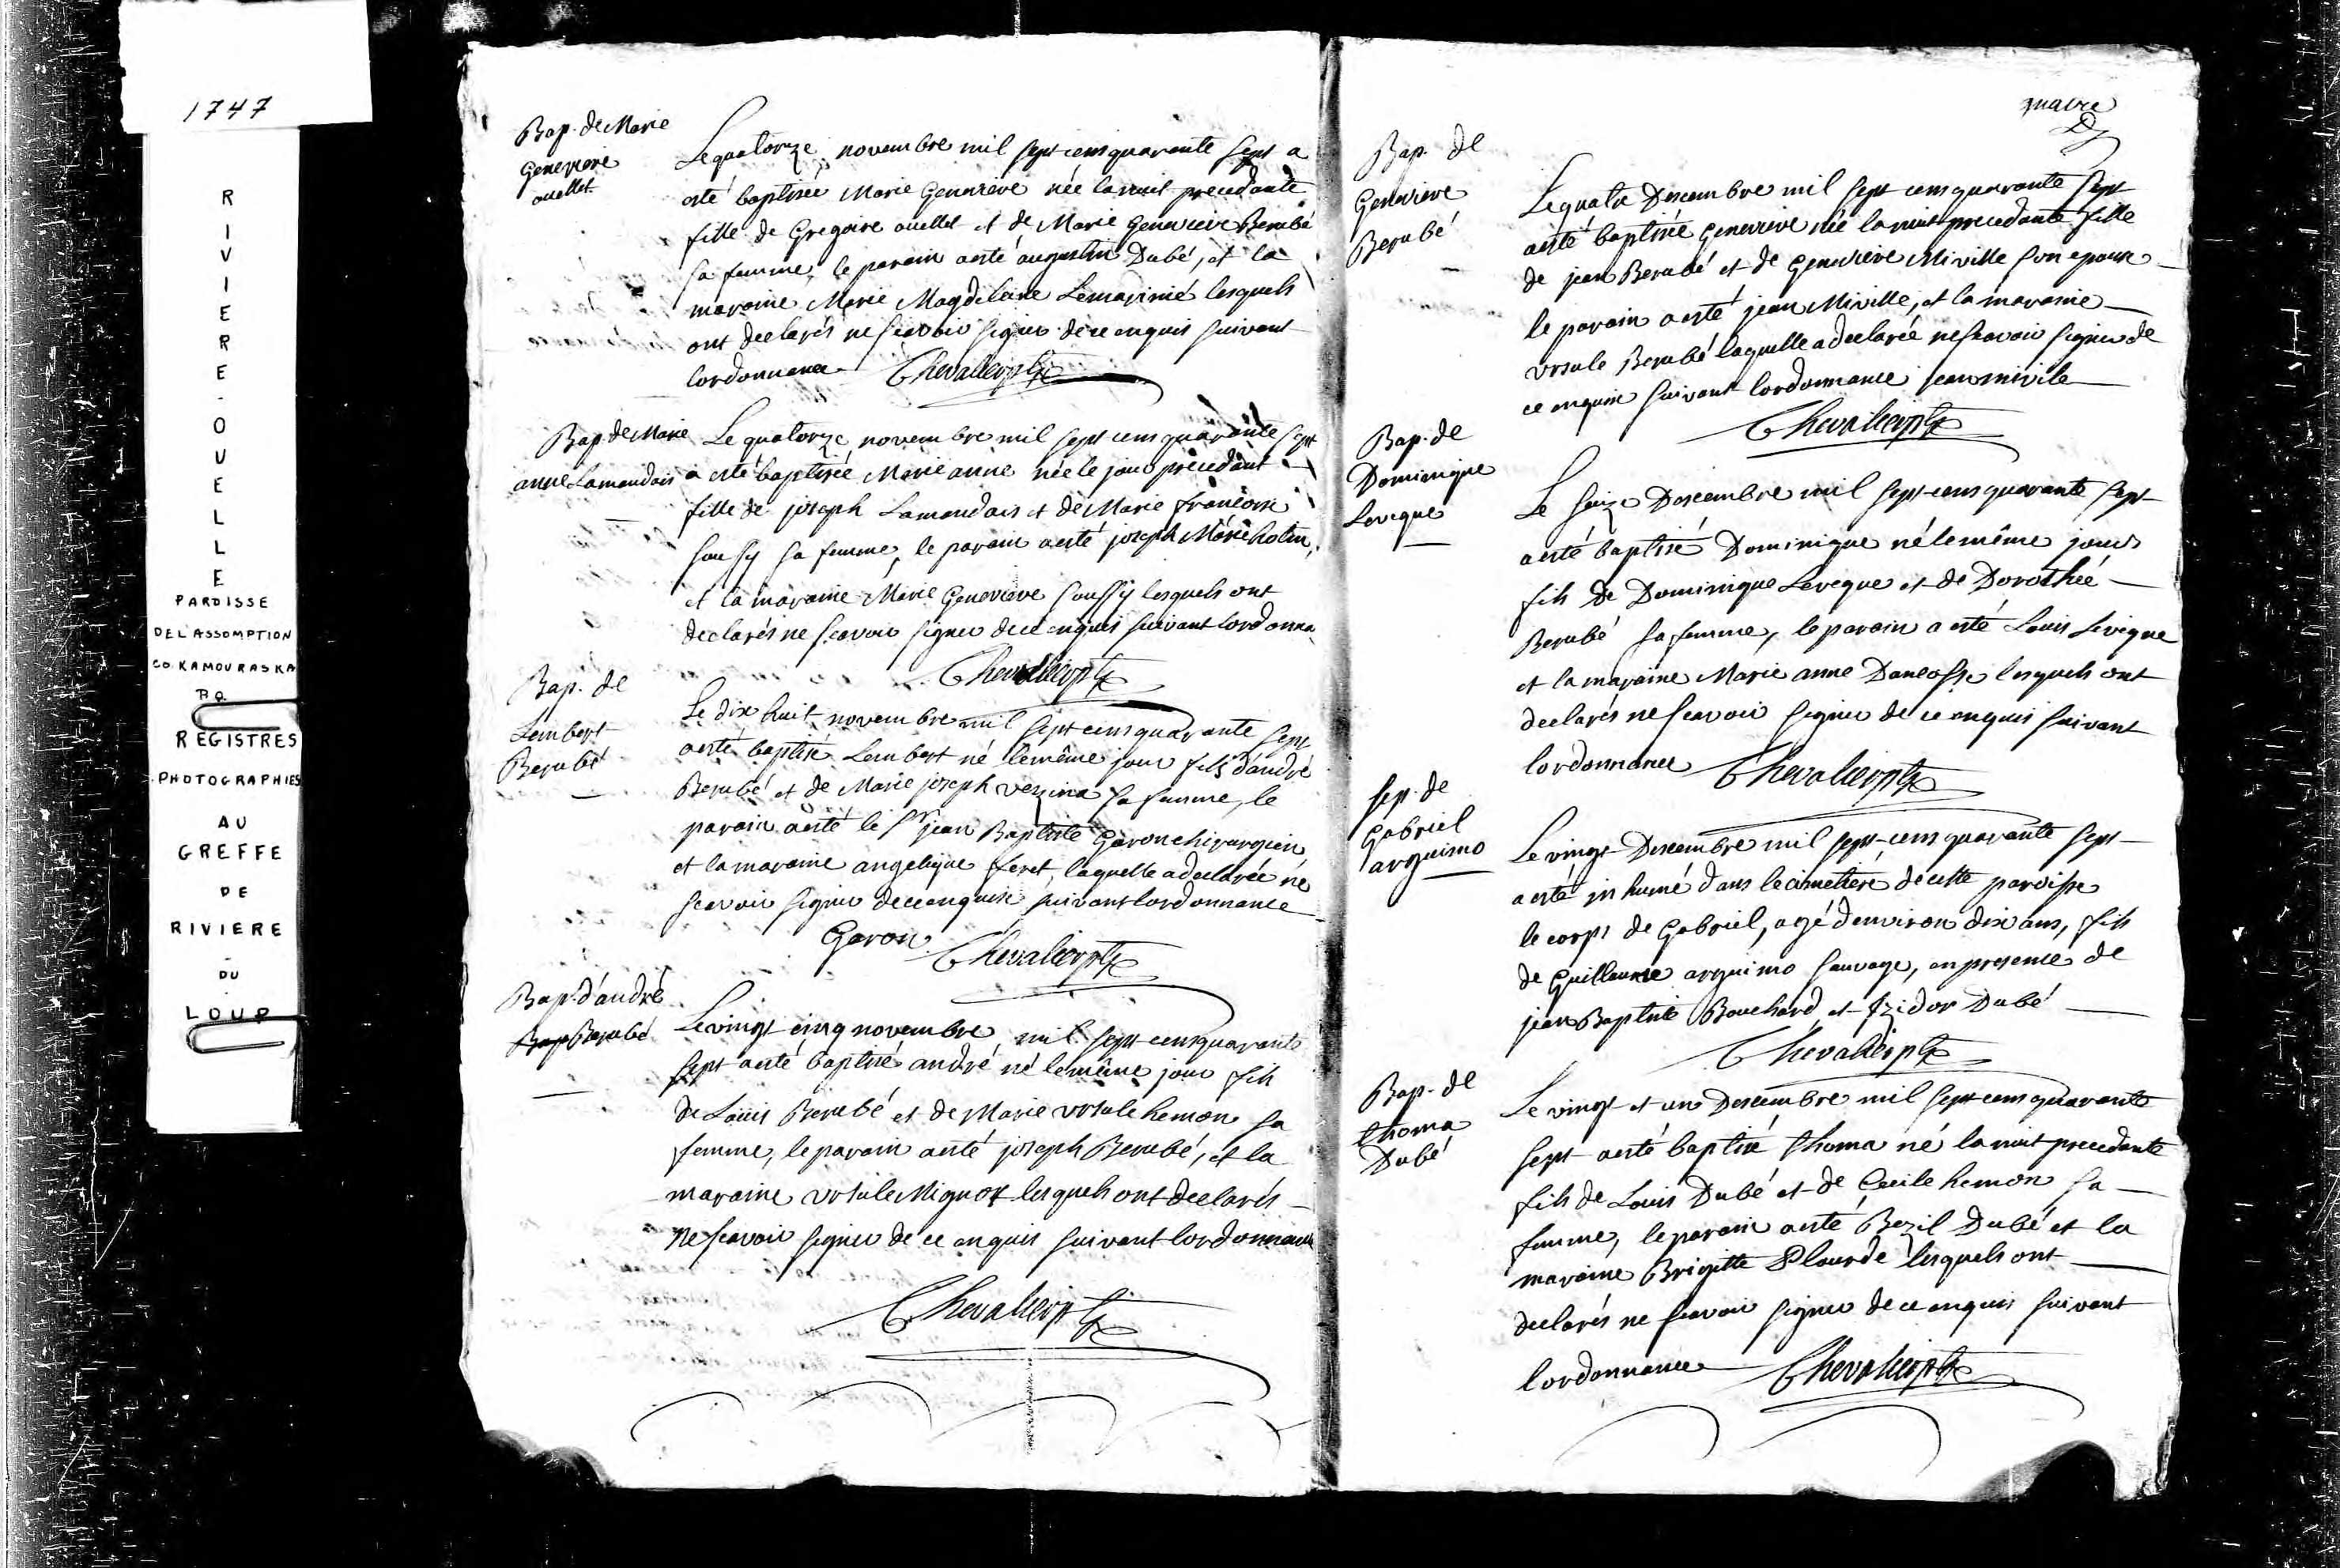 1747
R
I
V
I
E
R
E
-
O
U
E
L
L
E
PAROISSE
DE L'ASSOMPTION
CO. KAMOURASKA
P.Q.
REGISTRES
PHOTOGRAPHIES
AU
GREFFE
DE
RIVIERE
-
DU
-
LOUP
Bap. de Marie
Genevieve
ouellet
Le quatorze novembre mil sept cens quarante sept a
esté baptisée Marie Genevieve née la nuit precedante
fille de Gregoire ouellet et de Marie Genevieve Berubé
sa femme, le parain aesté augustin Dubé, et la
maraine Marie Magdeleine Lemarinié lesquels
ont declarés ne scavoir signer de ce enquis suivant
lordonnance Chevalier ptre
Bap. de Marie
anne Lamandais
Le quatorze novembre mil sept cens quarante sept
a esté baptisée Marie anne née le jour precedant
fille de joseph Lamandais et de Marie francoise
soussy sa femme, le parain aesté joseph Marie hotin,
et la maraine Marie Genevieve soussy lesquels ont
declarés ne scavoir signer de ce enquis suivant lordonna
Chevalier ptre
Bap. de
Lembert
Berubé
Le dix huit novembre mil sept cens quarante sept
aesté baptisé Lembert né le même jour fils d'andré
Berubé et de Marie joseph vezina sa femme, le
parain aesté le Sr jean Baptiste Garon chirurgien
et la maraine angelique feret, laquelle a declarée ne
scavoir signer de ce enquise suivant lordonnance
Garon Chevalier ptre
Bap. d'andré
Bap Berubé
Le vingt cinq novembre mil sept cens quarante
sept aesté baptisé andré né le même jour fils
de Louis Berubé et de Marie ursule hemon sa
femme, le parain aesté joseph Berubé, et la
maraine ursule Mignot lesquels ont declarés
ne scavoir signer de ce enquis suivant lordonnance
Chevalier ptre
Bap. de
Genevieve
Berubé
Le quatre Descembre mil sept cens quarante sept
aesté baptisée Genevieve née la nuit precedante fille
de jean Berubé et de Genevieve Miville son epouse
le parain a esté jean Miville, et la maraine
ursule Berubé laquelle a declarée ne scavoir signer de
ce enquise suivant lordonnance jean mivile
Chevalier ptre
Bap. de
Dominique
Leveque
Le seize Descembre mil sept cens quarante sept
aesté baptisé Dominique né le même jour
fils de Dominique Leveque et de Dorothée
Berubé sa femme, le parain a esté Louis Leveque
et la maraine Marie anne Dancosse lesquels ont
declarés ne scavoir signer de ce enquis suivant
lordonnance Chevalier ptre
Sep. de
Gabriel
arguimo
Le vingt Descembre mil sept cens quarante sept
a esté inhumé dans le cimetiere de cette paroisse
le corps de Gabriel, agé denviron dix ans, fils
de Guillaume arguimo sauvage, en presence de
jean Baptiste Bouchard et Izidor Dubé
Chevalier ptre
Bap. de
thoma
Dubé
Le vingt et un Descembre mil sept cens quarante
sept aesté baptisé thoma né la nuit precedante
fils de Louis Dubé et de Cecile hemon sa
femme, le parain aesté Bezil Dubé et la
maraine Brigitte Plourde lesquels ont
declarés ne scavoir signer de ce enquis suivant
lordonnance Chevalier ptre